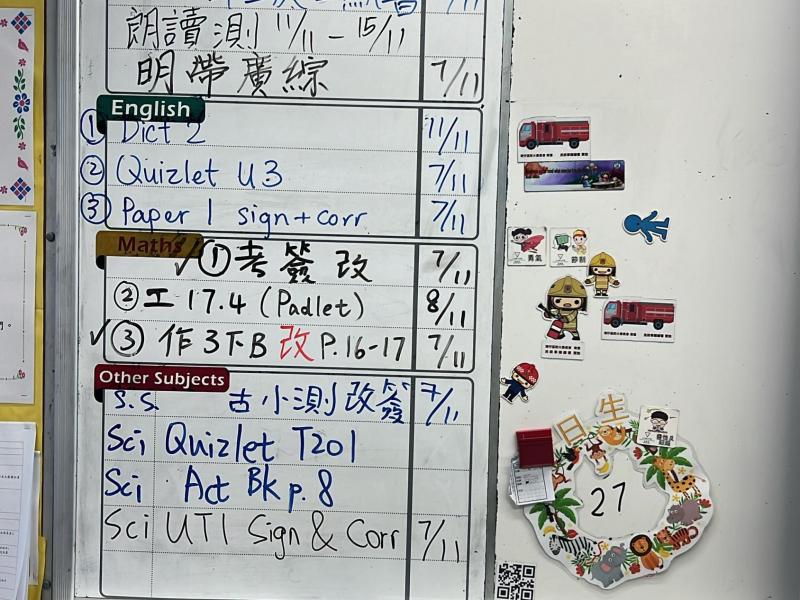 朗讀測 11/11 - 15/11
明帶廣綜 7/11
English
① Dict 2 11/11
② Quizlet U3 7/11
③ Paper 1 sign + corr 7/11
Maths
✓ ① 考簽改 7/11
② 工 17.4 (Padlet) 8/11
✓ ③ 作3下B 改 P.16-17 7/11
Other Subjects
S.S. 古小測改簽 7/11
Sci Quizlet T201
Sci Act Bk p. 8
Sci UT1 Sign & Corr 7/11
勇氣
節制
生日
27